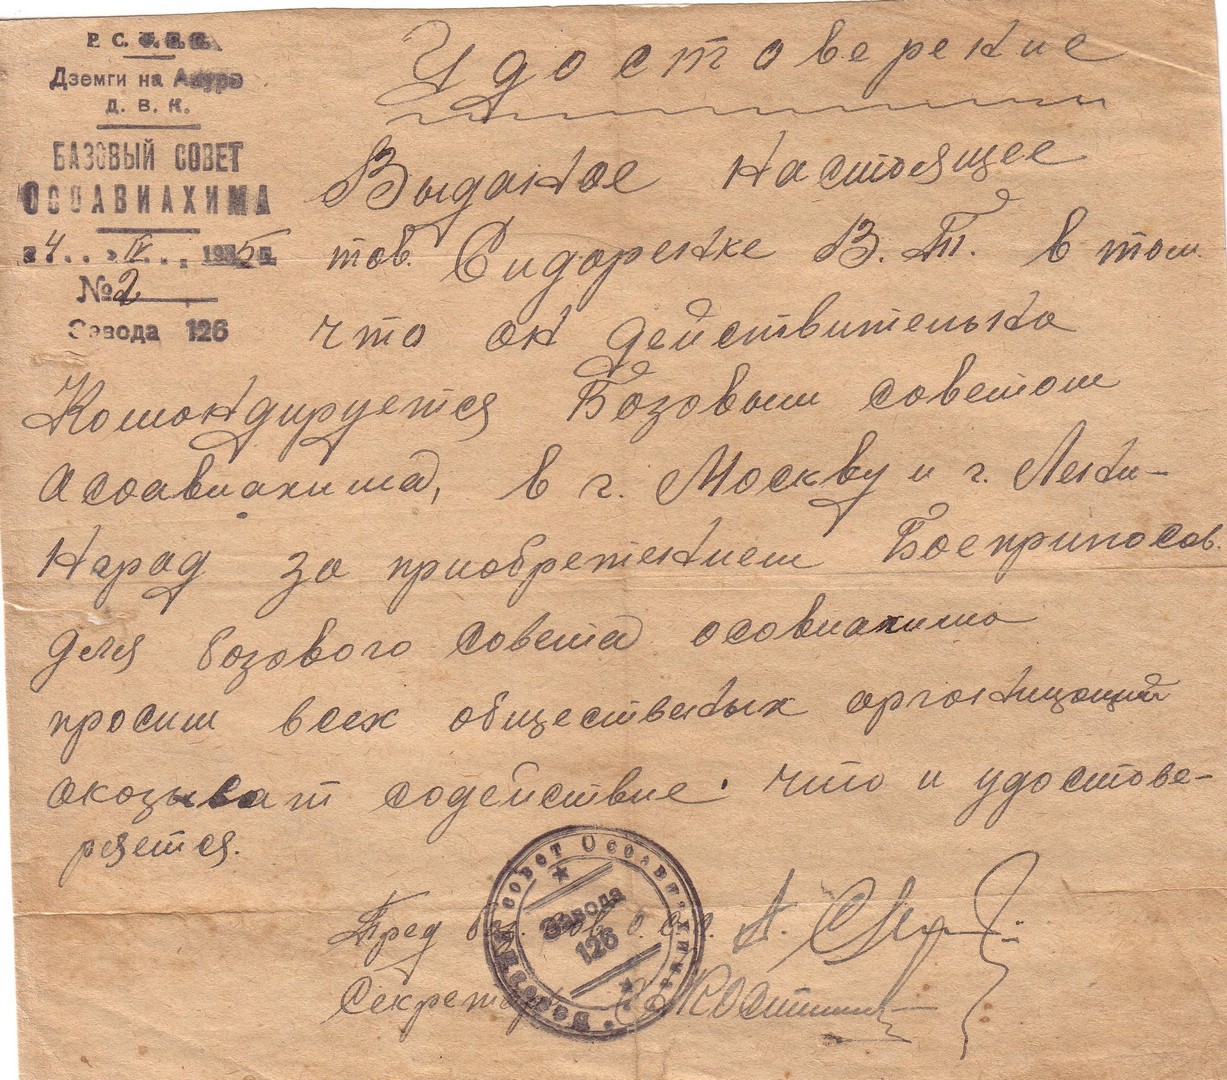 Р. С. Ф. С. Р.
Дземги на Амуре
Д. В. К.
БАЗОВЫЙ СОВЕТ
ОСОАВИАХИМА
"4" IV 1935 г.
№ 2
Завода 126
Удостоверение
Выданое настоящее
тов. Сидоренке В. Т. в том.
что он действительно
Командируется Базовым советом
Асоавиахима, в г. Москву и г. Лени-
нарад за приобретением Боеприпасов.
для базового совета осовиахима
просим всех общественых организаций
оказыват содействие. что и удостове-
ряется.
Пред баз. сов. о.
Секретарь
Базовый совет Осоавиахима
Завода
126